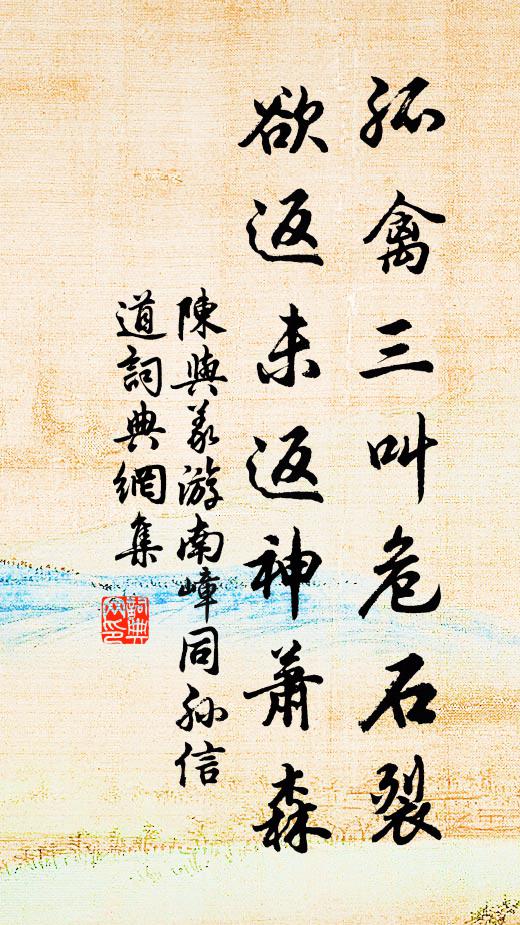 孤禽三叫危石裂
欲返未返神蕭森
陳與義游南嶂同孫信
道詞典網集
詞典